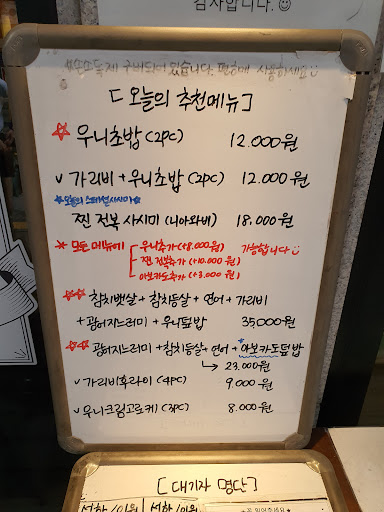 감사합니다.☺
*손소독제 구비되어 있습니다. 편하게 사용하세요☺
[오늘의 추천메뉴]
☆우니초밥(2pc) 12.000원
v 가리비+우니초밥(2pc) 12.000원
☆오늘의 스페셜 사시미☆
찐 전복 사시미 (니아와비) 18.000원
※ 모든 메뉴에 우니추가(+8.000원) 가능합니다☺
찐 전복추가(+10.000원)
아보카도추가(+3.000원)
☆☆ 참치뱃살+참치등살+연어+가리비
+광어지느러미+우니덮밥 35.000원
☆☆ 광어지느러미+참치등살+연어+아보카도덮밥
↳ 23.000원
v 가리비후라이(4pc) 9.000원
v 우니크림고로케(3pc) 8.000원
[대기자 명단]
성함/인원 성함/인원